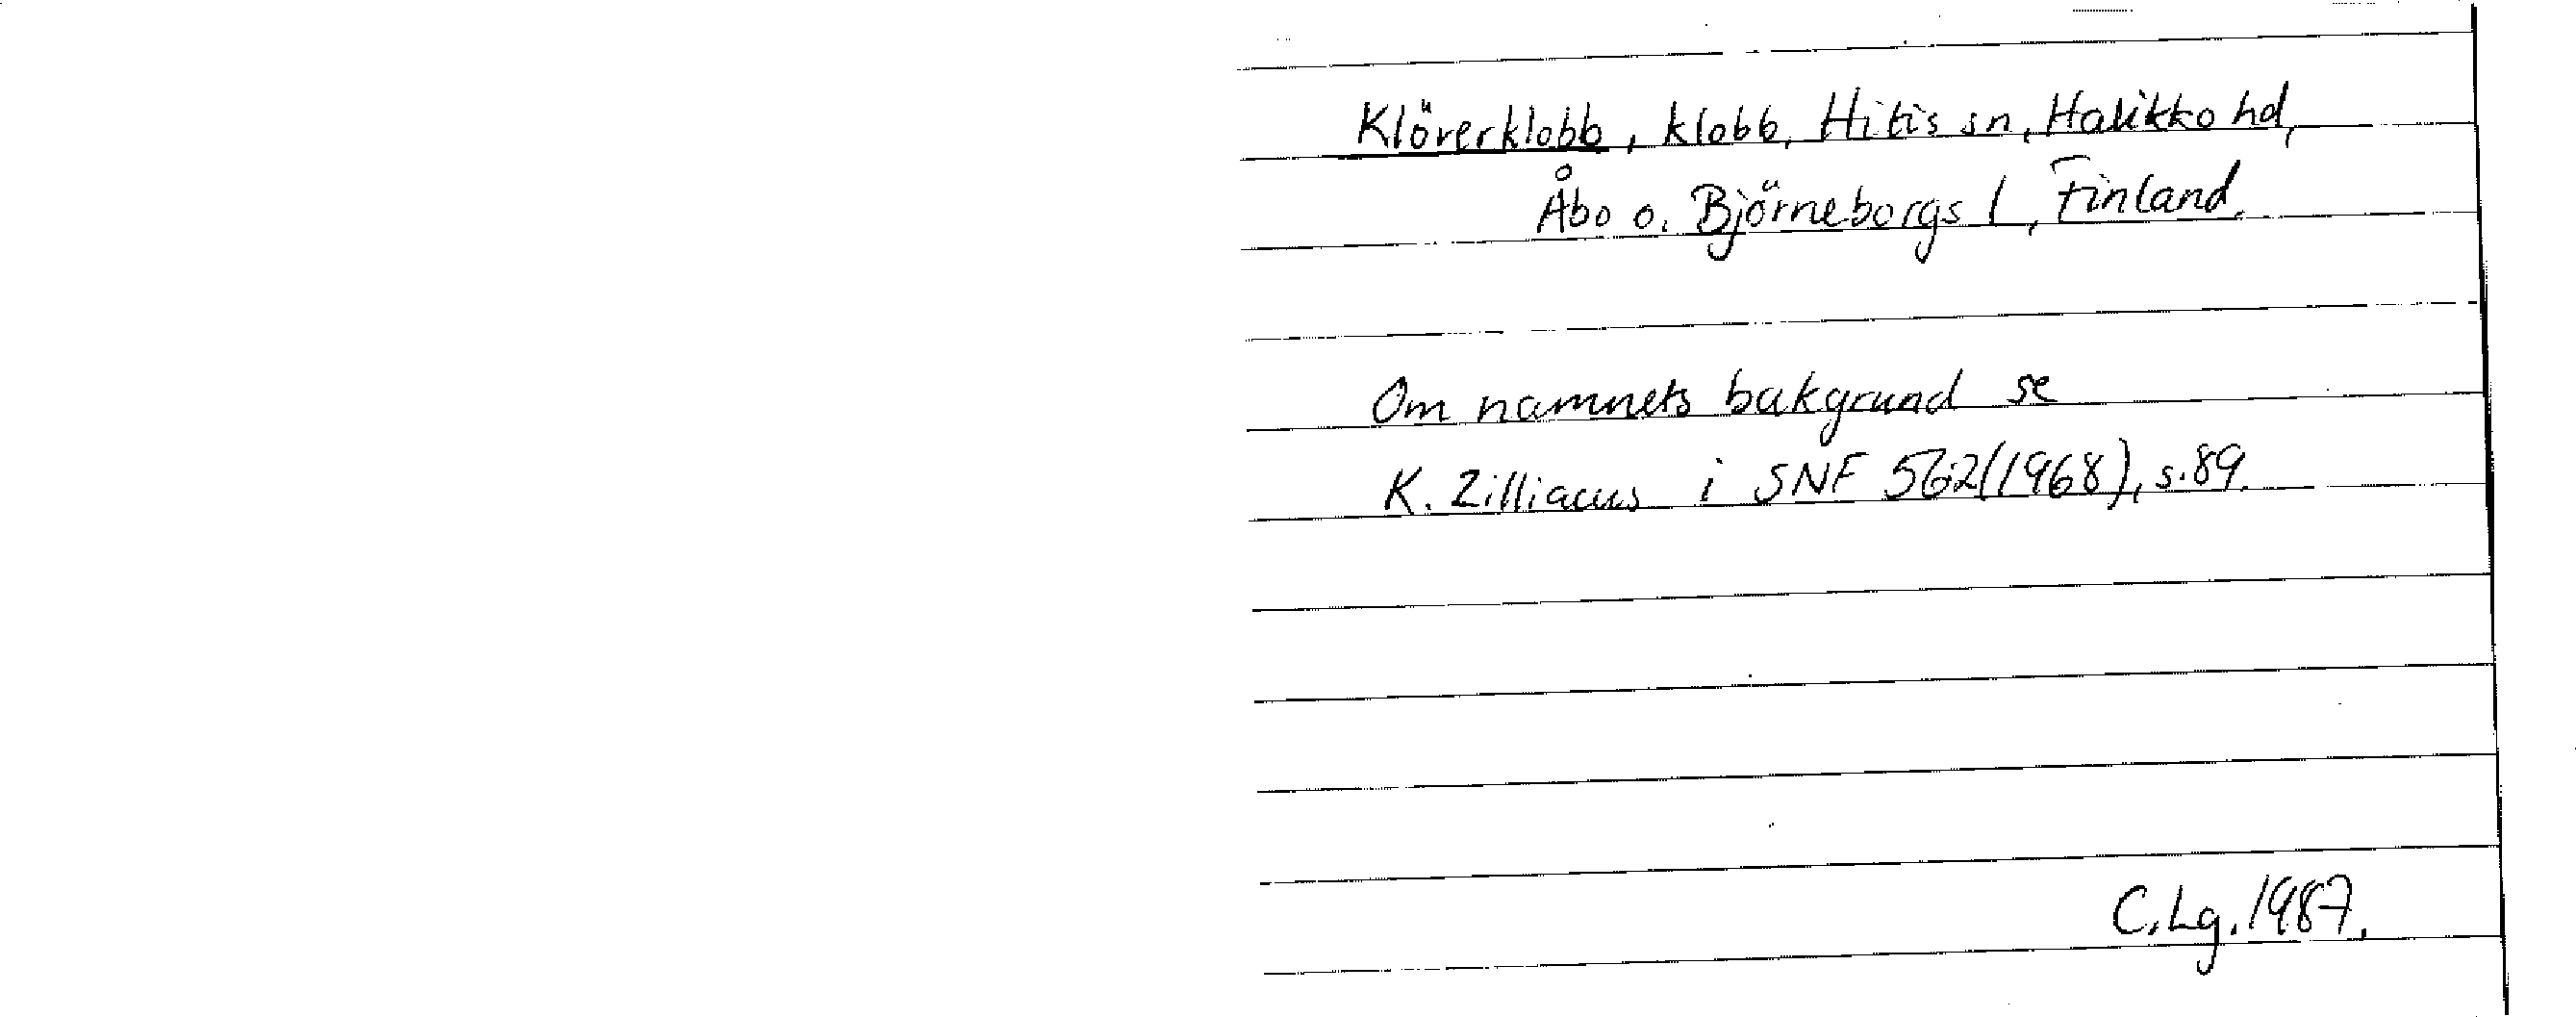 Klöverklobb, klobb, Hitis sn, Halikko hd,
Åbo o. Björneborgs l, Finland.
Om namnets bakgrund se
K. Zilliacus i SNF 56:2(1968), s.89.
C.Lg.1987.